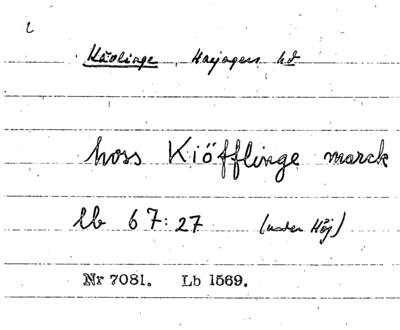 Kävlinge Harjagers hd
hoss Kiöfflinge marck
lb 67:27 (under Höj)
Nr 7081. Lb 1569.